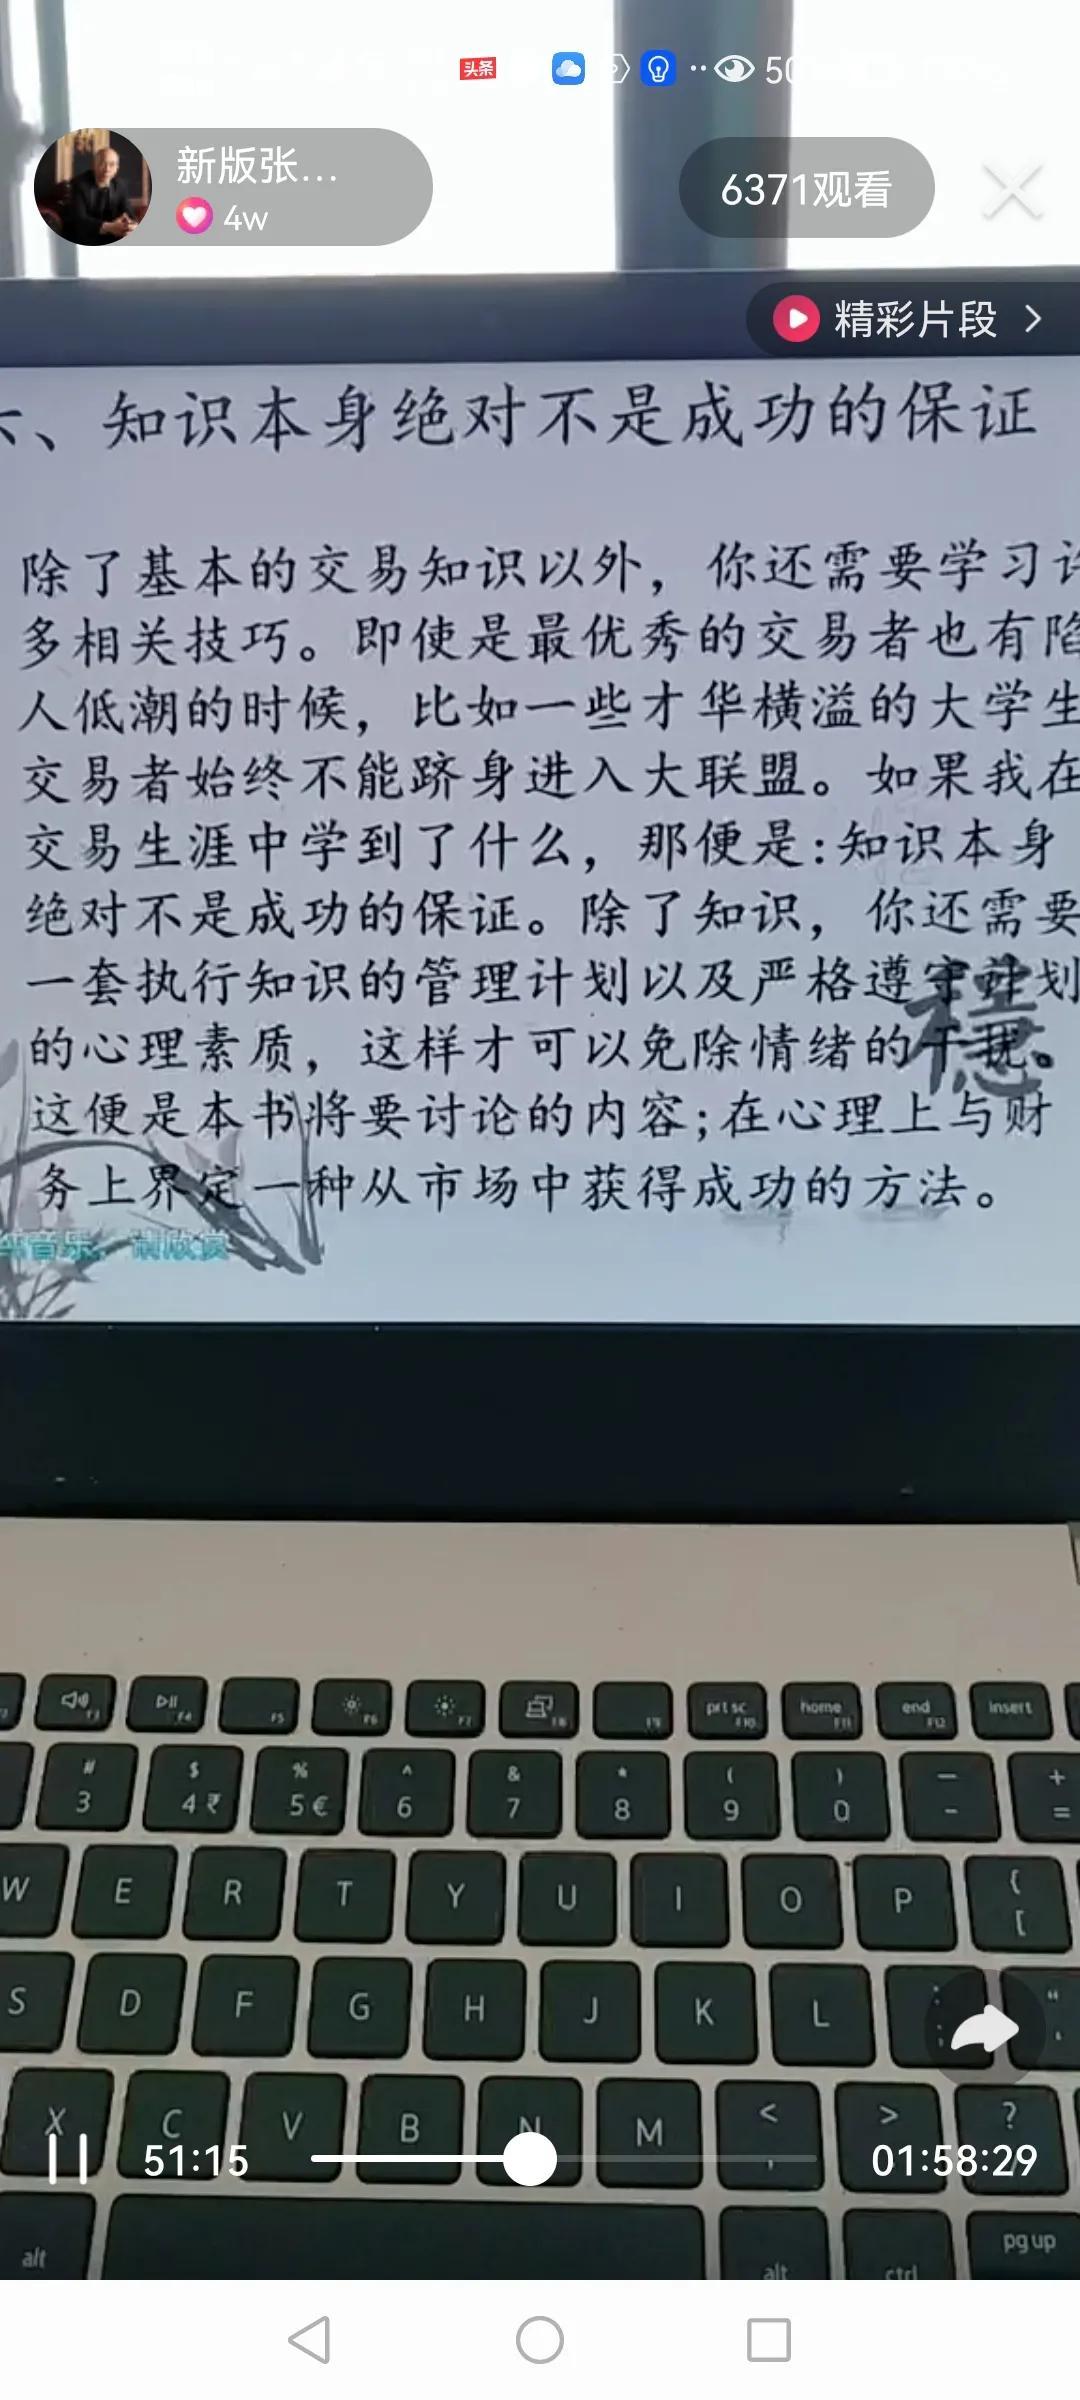 头条
50
新版张…
4w
6371观看
精彩片段
、知识本身绝对不是成功的保证
除了基本的交易知识以外，你还需要学习许
多相关技巧。即使是最优秀的交易者也有陷
人低潮的时候，比如一些才华横溢的大学生
交易者始终不能跻身进入大联盟。如果我在
交易生涯中学到了什么，那便是:知识本身
绝对不是成功的保证。除了知识，你还需要
一套执行知识的管理计划以及严格遵守计划
的心理素质，这样才可以免除情绪的干扰。
稳
这便是本书将要讨论的内容;在心理上与财
务上界定一种从市场中获得成功的方法。
音乐，请欣赏
F3 F4 F5 F6 F7 F8 F9 prt sc F10 home F11 end F12 insert
# $ % ^ & * ( ) — +
3 4 ₹ 5 € 6 7 8 9 0 - =
W E R T Y U I O P { [
S D F G H J K L : ; “ ‘
X C V B N M < , > ?
51:15
01:58:29
alt alt ctrl pg up